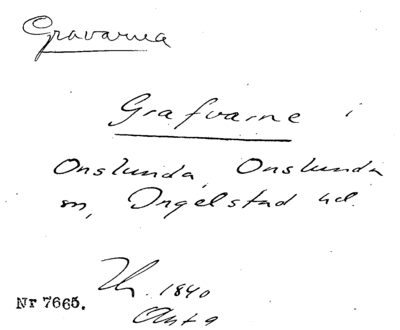 Gravarna
Grafvarne i
Onslunda, Onslunda
sn, Ingelstad hd.
1840
Nr 7665.